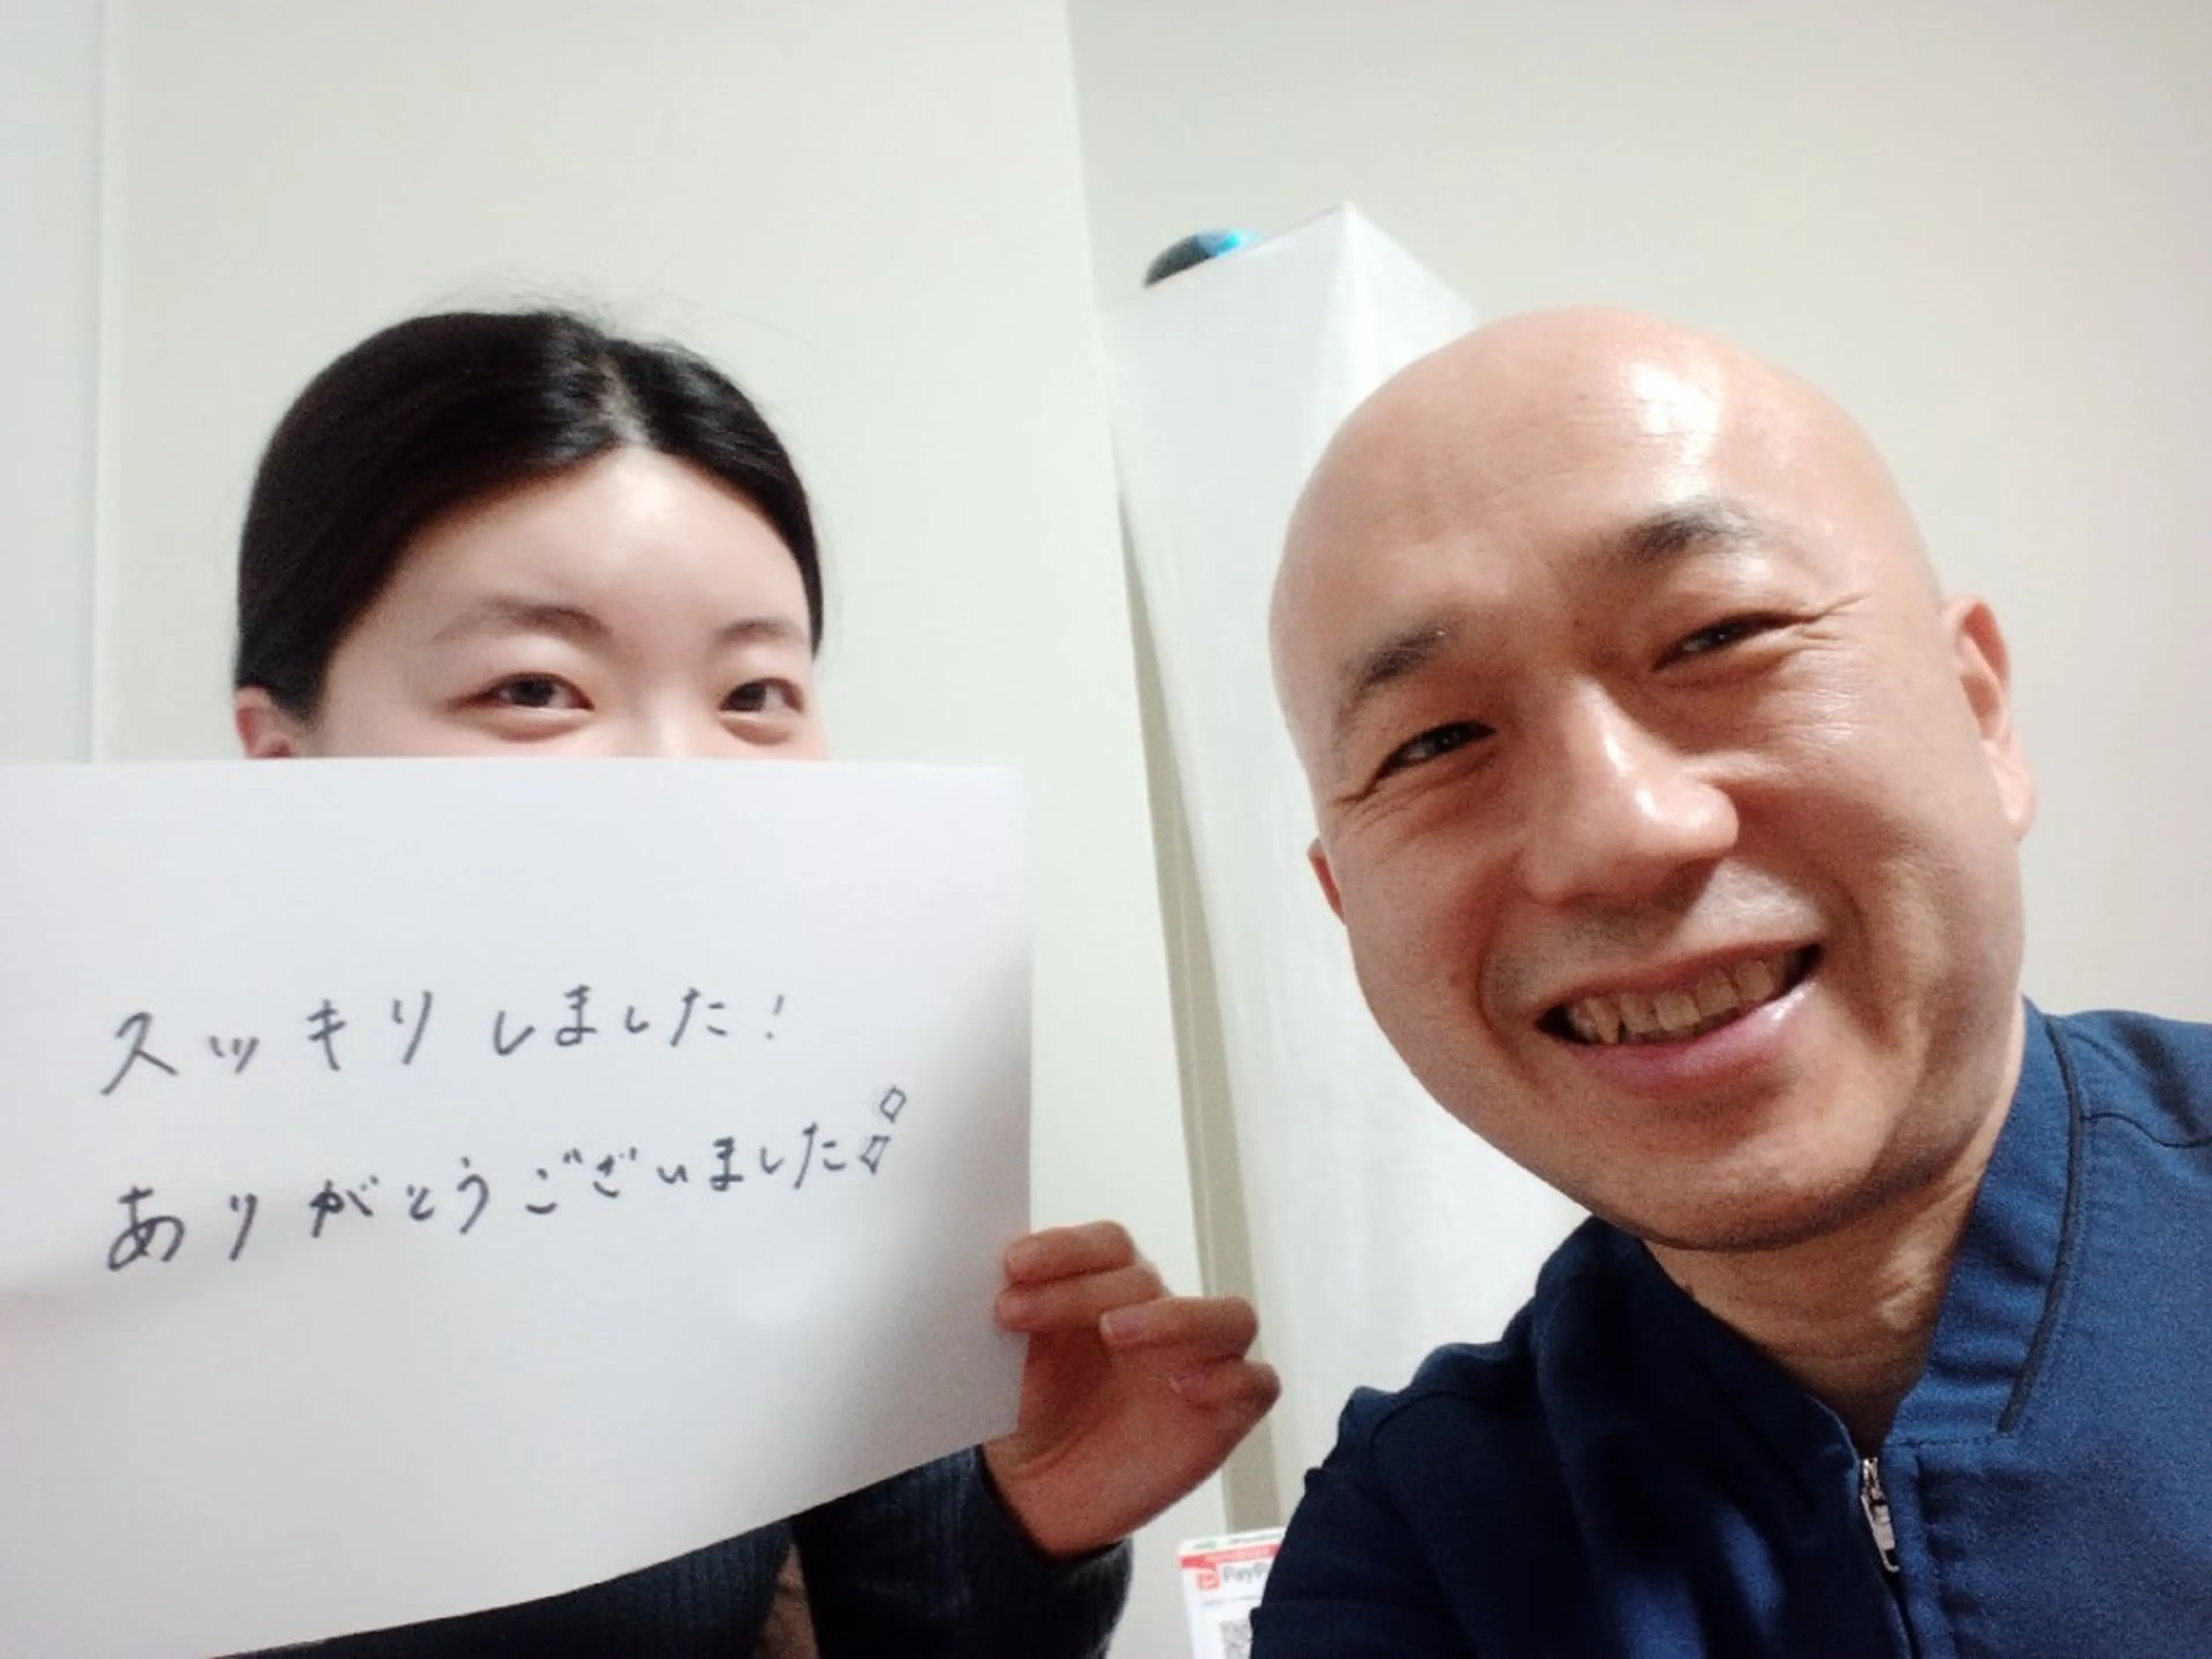 スッキリしました!
ありがとうございました